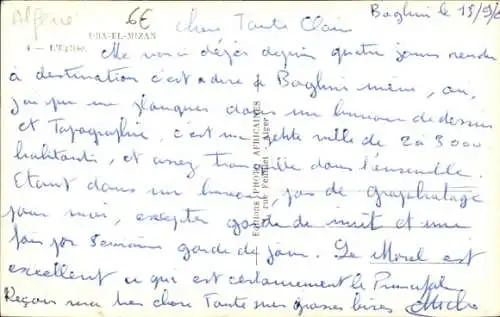 Algérie
6€
Boghni le 15/9/
DRA-EL-MIZAN
4 - L'Eglise
Chère Tante Claire
Me voici déjà depuis quatre jours rendu
à destination c'est a dire à Boghni même, ou,
j'ai pu me planquer dans un bureau de dessin
et Topographie, c'est une petite ville de 2 à 3000
habitants, et assez tranquille dans l'ensemble.
Etant dans un bureau pas de crapahutage
pour moi, excepter garde de nuit et une
fois par semaine garde de jour. Le Moral est
excellent ce qui est certainement le Principal.
Reçois ma très chère Tante mes grosses bises
Editions PHOTO AFRICAINES
Alger